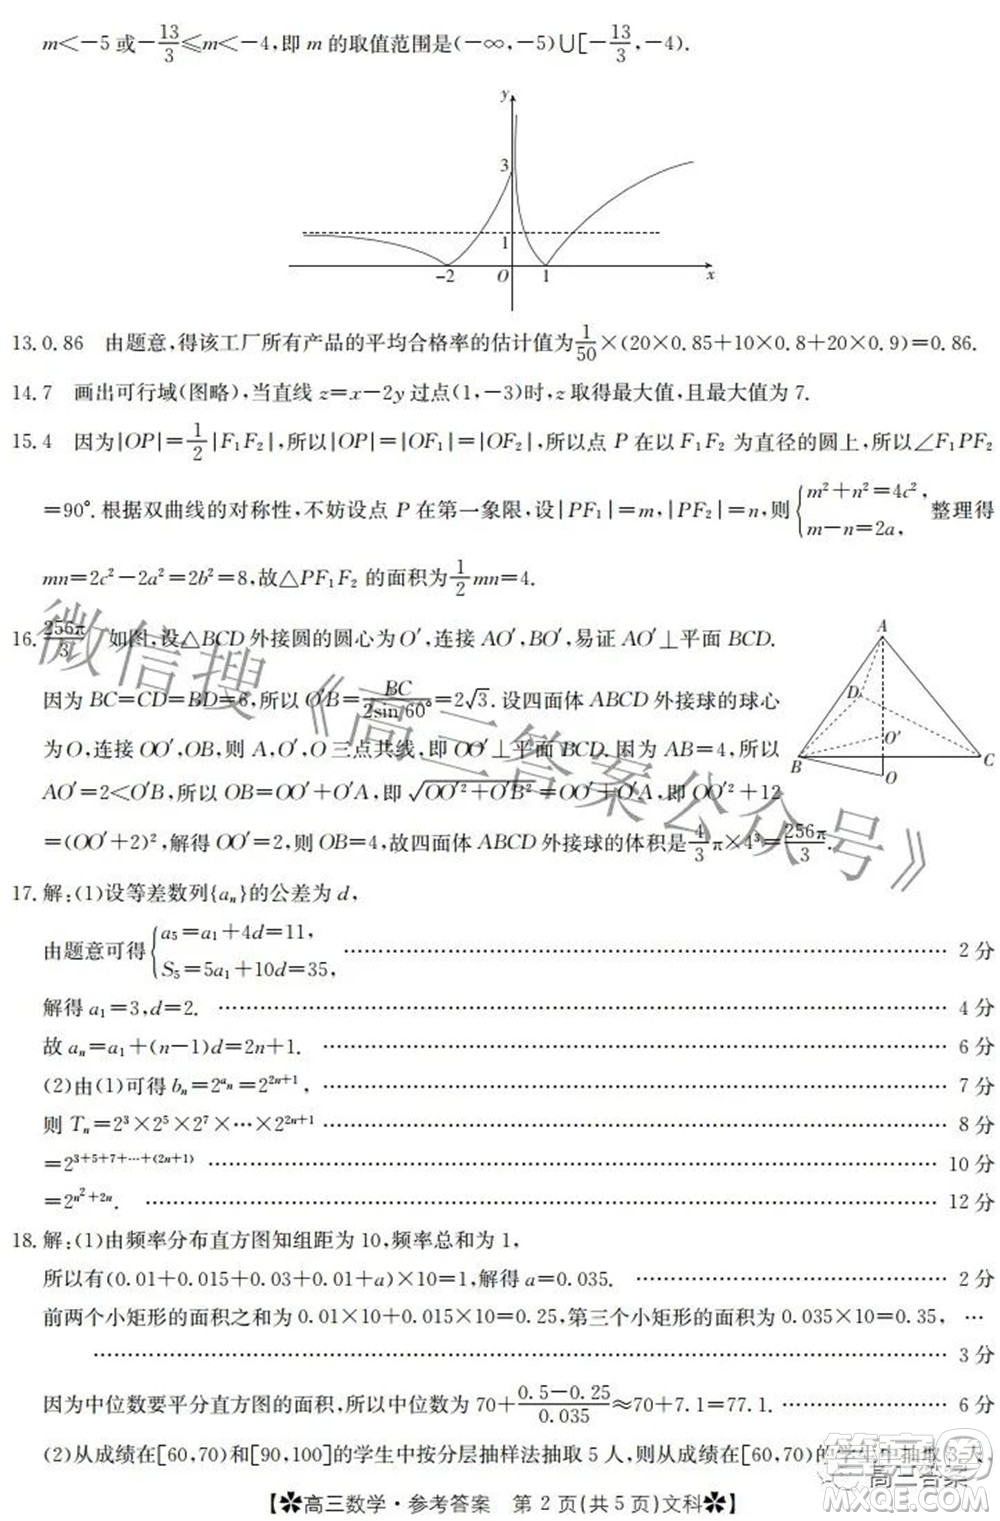 m<-5或-13/3≤m<-4,即 m 的取值范围是(-∞,-5)∪[-13/3,-4).
y
3
1
-2 O 1 x
13. 0.86 由题意,得该工厂所有产品的平均合格率的估计值为1/50×(20×0.85+10×0.8+20×0.9)=0.86.
14. 7 画出可行域(图略),当直线 z=x-2y 过点(1,-3)时,z 取得最大值,且最大值为 7.
15. 4 因为|OP|=1/2|F₁F₂|,所以|OP|=|OF₁|=|OF₂|,所以点 P 在以 F₁F₂ 为直径的圆上,所以∠F₁PF₂
=90°.根据双曲线的对称性,不妨设点 P 在第一象限,设|PF₁|=m,|PF₂|=n,则{m²+n²=4c², m-n=2a, 整理得
mn=2c²-2a²=2b²=8,故△PF₁F₂ 的面积为1/2mn=4.
16. 256π/3 如图,设△BCD 外接圆的圆心为 O′,连接 AO′,BO′,易证 AO′⊥平面 BCD.
因为 BC=CD=BD=6,所以 O′B=BC/2sin 60°=2√3.设四面体 ABCD 外接球的球心
为 O,连接 OO′,OB,则 A,O′,O 三点共线,即 OO′⊥平面 BCD.因为 AB=4,所以
AO′=2<O′B,所以 OB=OO′+O′A,即√(OO′²+O′B²)=OO′+O′A,即 OO′²+12
=(OO′+2)²,解得 OO′=2,则 OB=4,故四面体 ABCD 外接球的体积是4/3π×4³=256π/3.
A
D
O′
B
C
O
17. 解:(1)设等差数列{aₙ}的公差为 d,
由题意可得{a₅=a₁+4d=11, S₅=5a₁+10d=35, …… 2 分
解得 a₁=3,d=2. …… 4 分
故 aₙ=a₁+(n-1)d=2n+1. …… 6 分
(2)由(1)可得 bₙ=2^{aₙ}=2^{2n+1}, …… 7 分
则 Tₙ=2³×2⁵×2⁷×⋯×2^{2n+1} …… 8 分
=2^{3+5+7+⋯+(2n+1)} …… 10 分
=2^{n²+2n}. …… 12 分
18. 解:(1)由频率分布直方图知组距为 10,频率总和为 1,
所以有(0.01+0.015+0.03+0.01+a)×10=1,解得 a=0.035. …… 2 分
前两个小矩形的面积之和为 0.01×10+0.015×10=0.25,第三个小矩形的面积为 0.035×10=0.35, …
…… 3 分
因为中位数要平分直方图的面积,所以中位数为 70+(0.5-0.25)/0.035≈70+7.1=77.1. …… 6 分
(2)从成绩在[60,70)和[90,100]的学生中按分层抽样法抽取 5 人,则从成绩在[60,70)的学生中抽取 3 人,
【✽高三数学·参考答案 第 2 页(共 5 页)文科✽】
微信搜《高三答案公众号》
高三答案
答案圈
MXQE.COM